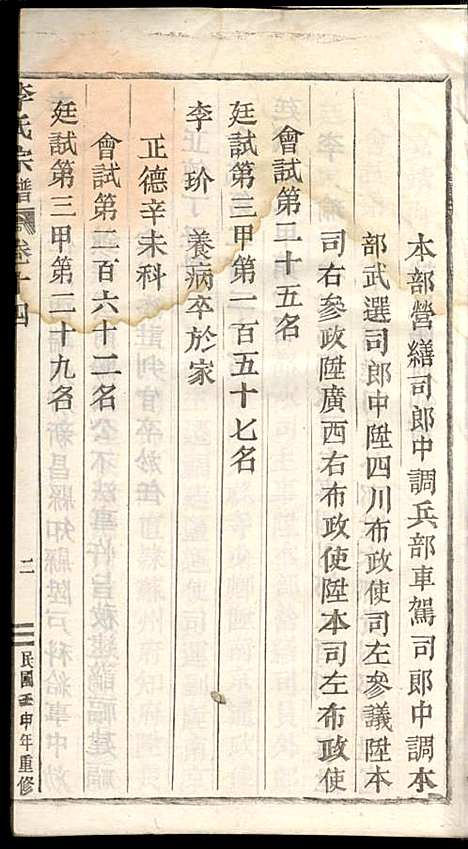 本部營繕司郎中調兵部車駕司郎中調本
部武選司郎中陞四川布政使司左參議陞本
司右參政陞廣西右布政使陞本司左布政使
會試第二十五名
廷試第三甲第一百五十七名
李玠 養病卒於家
正德辛未科
會試第二百六十二名
廷試第三甲第二十九名
李氏宗譜 卷十四 二 民國壬申年重修